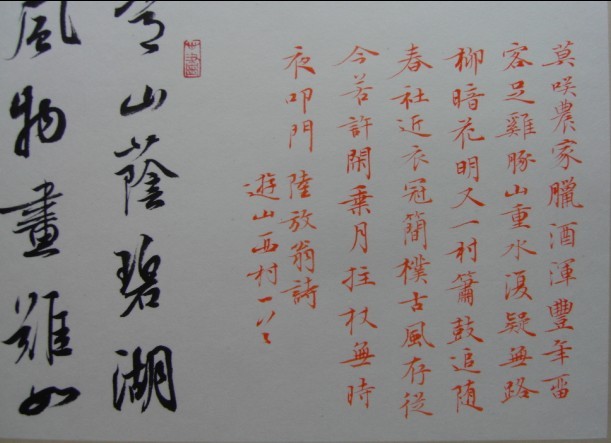 莫咲農家臘酒渾豐年畱
客足雞豚山重水復疑無路
柳暗花明又一村簫鼓追随
春社近衣冠簡樸古風存從
今若許閑乘月拄杖無時
夜叩門 陸放翁詩
遊山西村一
山蔭碧湖
風物畫難如